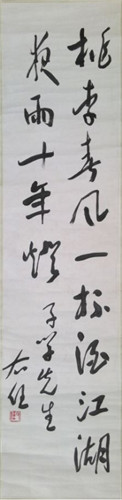 桃李春风一杯酒江湖
夜雨十年灯
子学先生
右任